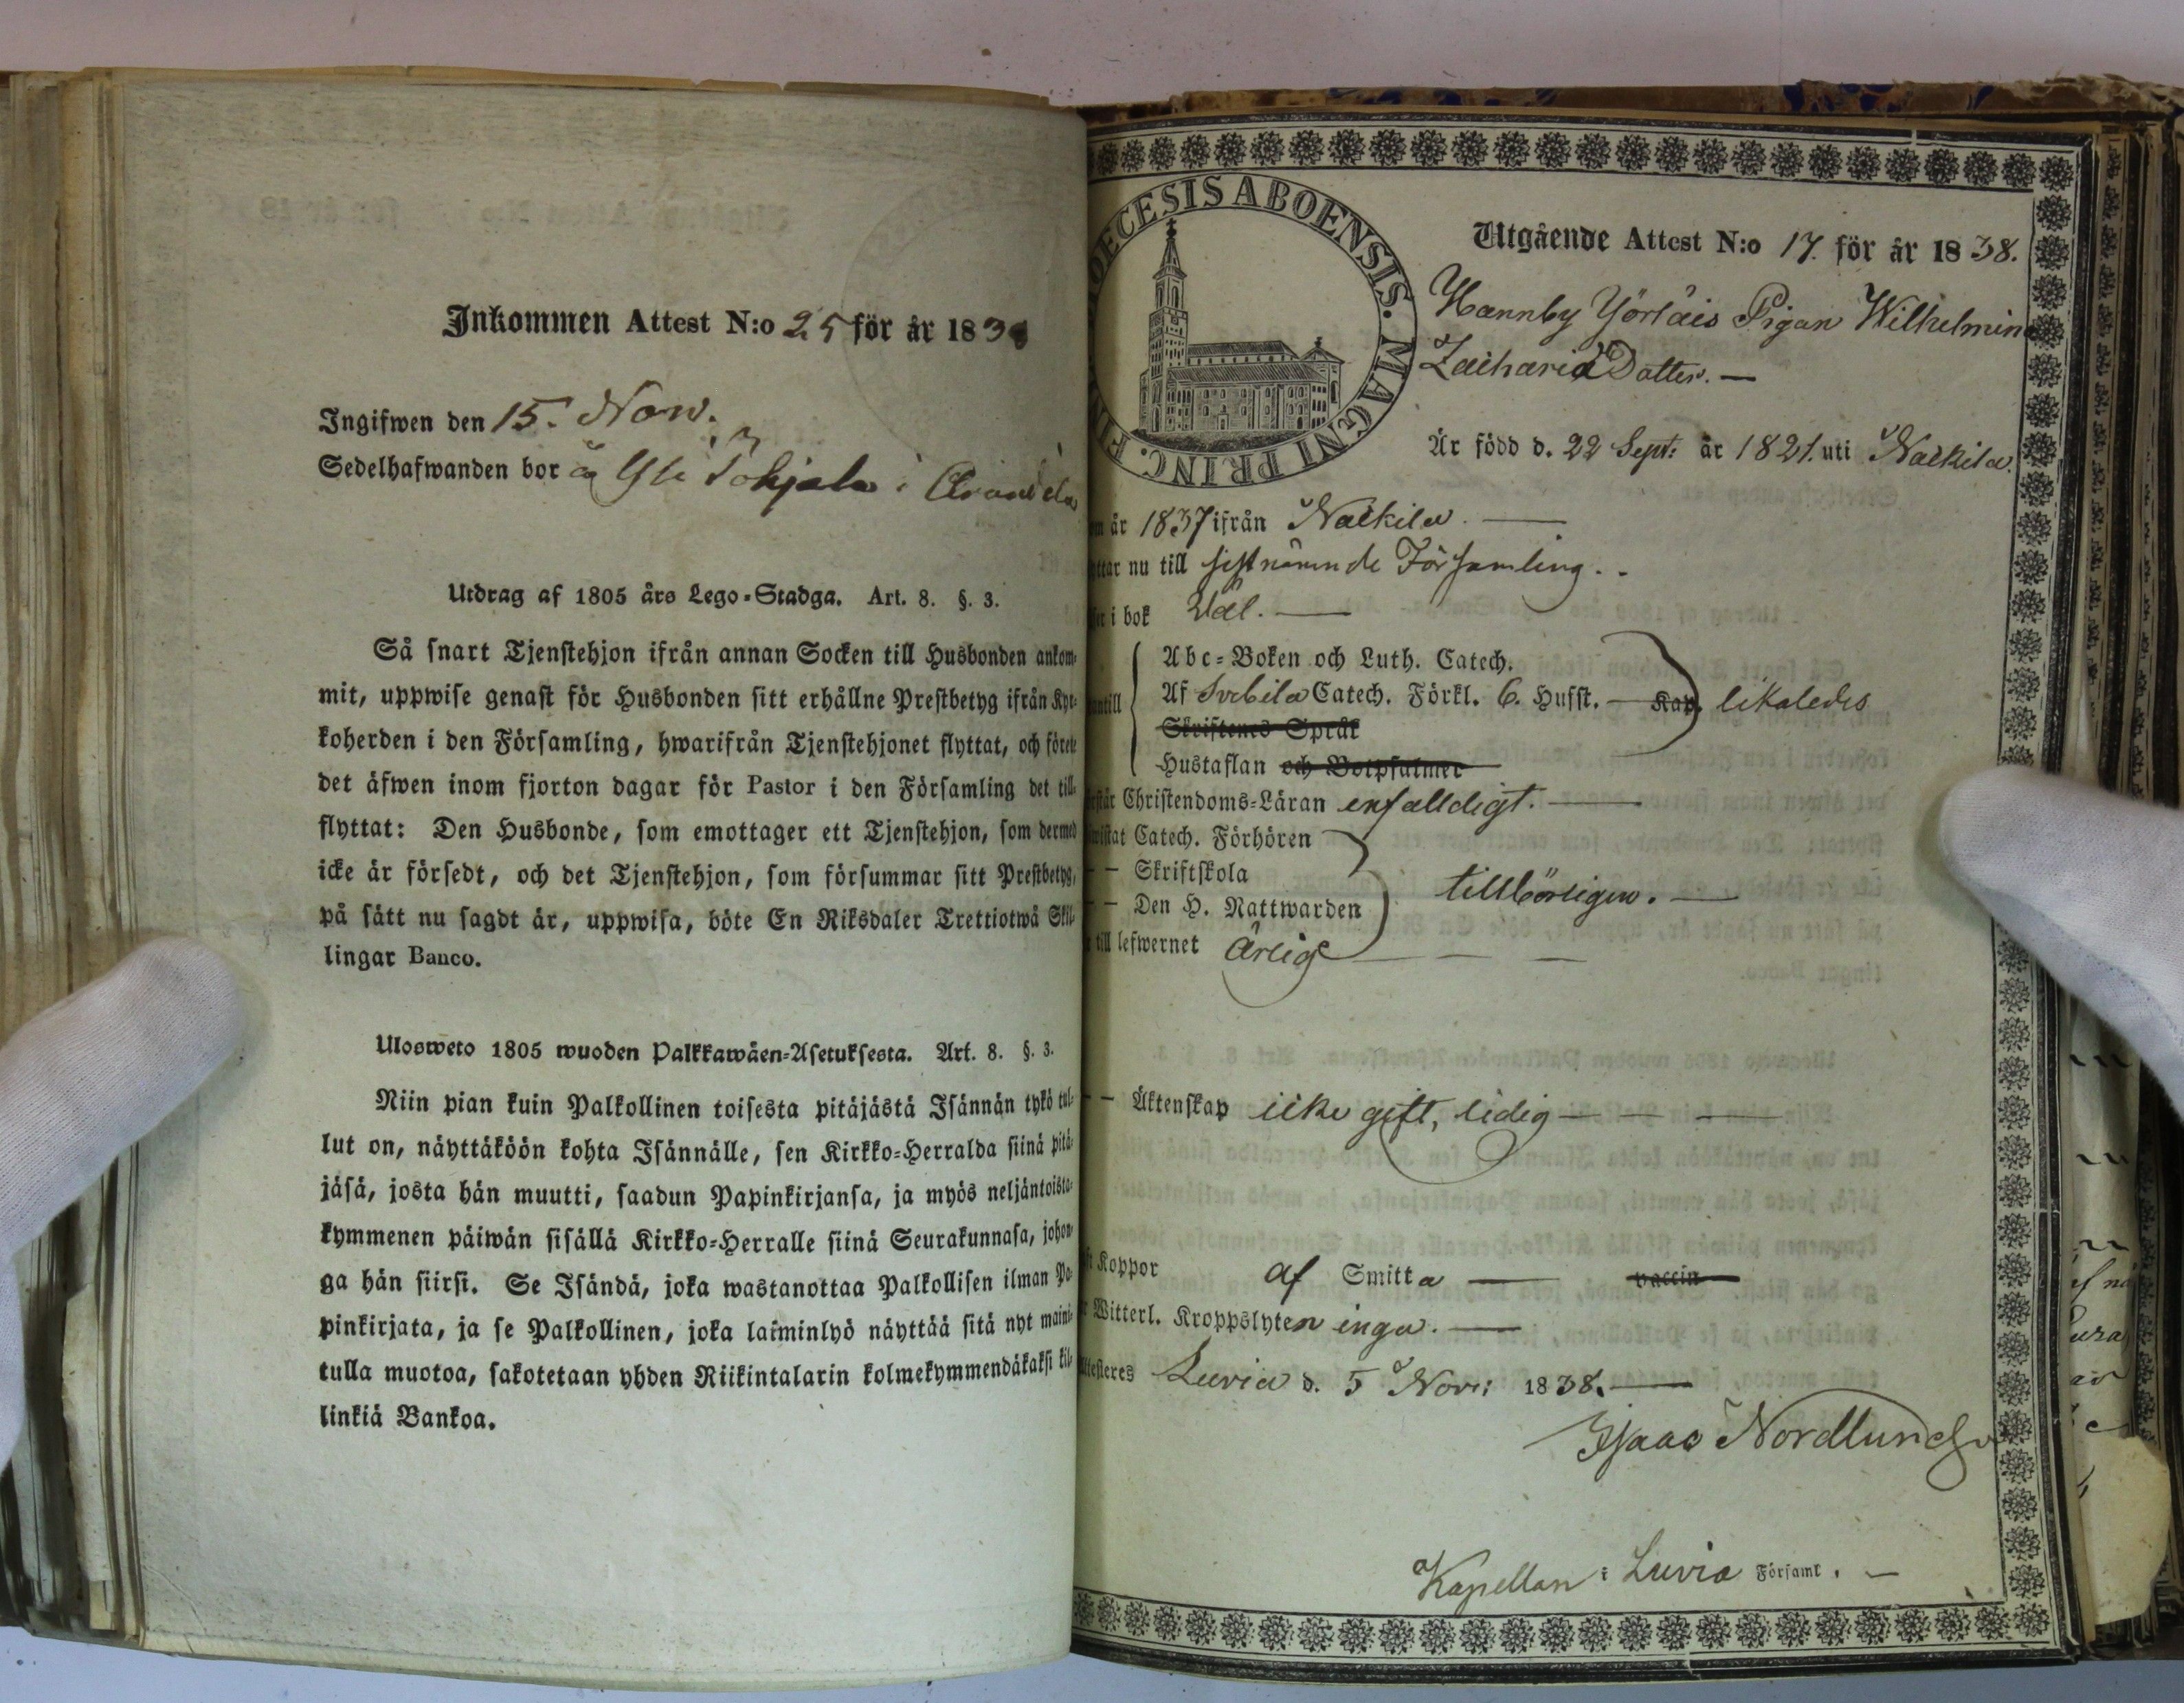 Inkommen Attest N:o 25 för år 183
Ingifwen den 15. Nov.
Sedelhafwanden bor å Yli Pohjala i
Utdrag af 1805 års Lego-Stadga. Art. 8. §. 3.
Så snart Tjenstehjon ifrån annan Socken till Husbonden ankom-
mit, uppwise genast för Husbonden sitt erhållne Prestbetyg ifrån Kyr-
koherden i den Församling, hwarifrån Tjenstehjonet flyttat, och förete
det äfwen inom fjorton dagar för Pastor i den Församling det till-
flyttat: Den Husbonde, som emottager ett Tjenstehjon, som dermed
icke är försedt, och det Tjenstehjon, som försummar sitt Prestbetyg,
på sätt nu sagdt är, uppwisa, böte En Riksdaler Trettiotwå Skil-
lingar Banco.
Ulosweto 1805 wuoden Palkkawäen-Asetuksesta. Art. 8. §. 3.
Niin pian kuin Palkollinen toisesta pitäjästä Isännän tykö tul-
lut on, näyttäköön kohta Isännälle, sen Kirkko-Herralda siinä pitä-
jäsä, josta hän muutti, saadun Papinkirjansa, ja myös neljäntoista-
kymmenen päiwän sisällä Kirkko-Herralle siinä Seurakunnasa, johon-
ga hän siirsi. Se Isändä, joka wastanottaa Palkollisen ilman Pa-
pinkirjata, ja se Palkollinen, joka laiminlyö näyttää sitä nyt maini-
tulla muotoa, sakotetaan yhden Riikintalarin kolmekymmendäkaksi kil-
linkiä Bankoa.
DIOECESIS ABOENSIS. MAGNI PRINC. FIN
Utgående Attest N:o 17. för år 1838.
Hannby Yörläis Pigan Wilhelmina
Zacharia Dotter. —
Är född d. 22 Sept: år 1821. uti Nackila.
år 1837 ifrån Nackila. —
ttar nu till sistnämnde Församling. -
i bok Väl. —
Abc-Boken och Luth. Catech.
Af Svebilii Catech. Förkl. 6. Hufst. — Kap. likaledes
Skriftenes Språk
Hustaflan och Botpsalmer
Christendoms-Läran enfalldigt. —
Catech. Förhören
— Skriftskola
— Den H. Nattwarden tillbörligen. —
till lefwernet Ärlig — — —
— Äktenskap icke gift, ledig — — —
Koppor af Smitta — vaccin
Witterl. Kroppslyten inga. —
Luvia d. 5 Nov: 1838. —
Isaac Nordlund
Kapellan i Luvia Församl. —